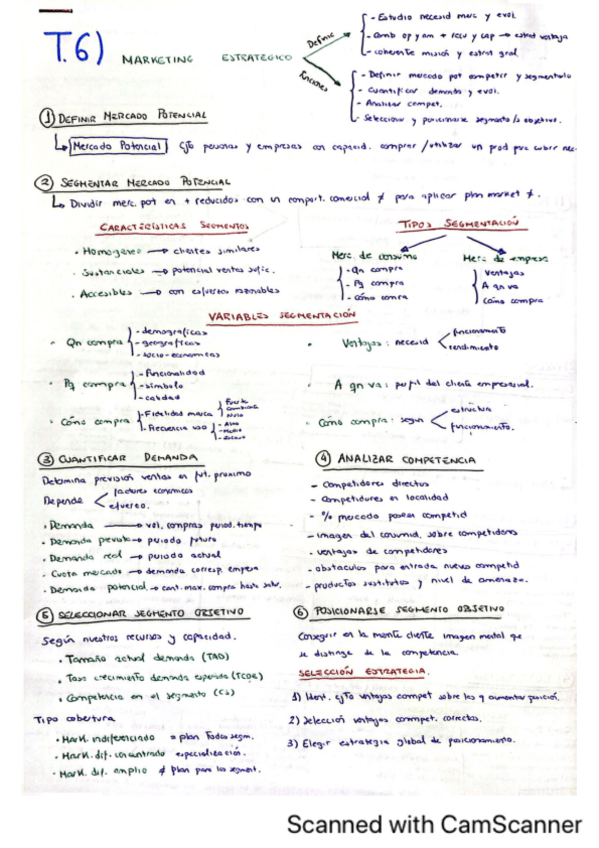 T.6) MARKETING ESTRATEGICO
Definir
- Estudio necesid merc y evol.
- Comb op y am + recu y cap → estrat ventaja
- coherente misión y estrat gral.
Funciones
- Definir mercado pot competir y segmentarlo
- Cuantificar demanda y evol.
- Analizar compet.
- Seleccionar y posicionarse segmento/s objetivo.
① DEFINIR MERCADO POTENCIAL
↳ Mercado Potencial cjto personas y empresas con capacid. comprar / utilizar un prod para cubrir nec.
② SEGMENTAR MERCADO POTENCIAL
↳ Dividir merc. pot en + reducidos con un comport. comercial ≠ para aplicar plan market ≠.
CARACTERÍSTICAS SEGMENTOS
· Homogéneo → clientes similares
· Sustanciales → potencial ventas sufic.
· Accesibles → con esfuerzos razonables
TIPOS SEGMENTACIÓN
Merc. de consumo
- Qn compra
- Pq compra
- Cómo compra
Merc. de empresa
Ventajas
A qn va
Cómo compra
VARIABLES SEGMENTACIÓN
· Qn compra
- demograficas
- geograficas
- socio-economicas
· Pq compra
- Funcionalidad
- simbolo
- calidad
· Cómo compra
- Fidelidad marca
Fuerte
Compartida
- Frecuencia uso
- Alto
- Medio
- Escaso
· Ventajas: necesid
funcionamiento
rendimiento
· A qn va: perfil del cliente empresarial.
· Cómo compra: según
estructura
funcionamiento.
③ CUANTIFICAR DEMANDA
Determina previsión ventas en fut. proximo
Depende
factores económicos
esfuerzo.
· Demanda → vol. compras period. tiempo
· Demanda prevista → periodo futuro
· Demanda real → periodo actual
· Cuota mercado → demanda corresp. empresa
· Demanda potencial → cant. max. compra hasta satur.
④ ANALIZAR COMPETENCIA
- Competidores directos
- Competidores en localidad
- % mercado poseen competid
- imagen del consumid. sobre competidores
- ventajas de competidores
- obstaculos para entrada nuevos competid
- productos sustitutos y nivel de amenaza.
⑤ SELECCIONAR SEGMENTO OBJETIVO
Según nuestros recursos y capacidad.
· Tamaño actual demanda (TAD)
· Tasa crecimiento demanda esperada (TCDE)
· Competencia en el segmento (CS)
Tipo cobertura
· Mark. indiferenciado = plan todos segm.
· Mark. dif. concentrado especialización.
· Mark. dif. amplio ≠ plan para los segment.
⑥ POSICIONARSE SEGMENTO OBJETIVO
Conseguir en la mente cliente imagen mental que
se distinga de la competencia.
SELECCIÓN ESTRATEGIA.
1) Ident. cjto ventajas compet sobre las q aumentar posición.
2) Selección ventajas commpet. correctas.
3) Elegir estrategia global de posicionamiento.
Scanned with CamScanner